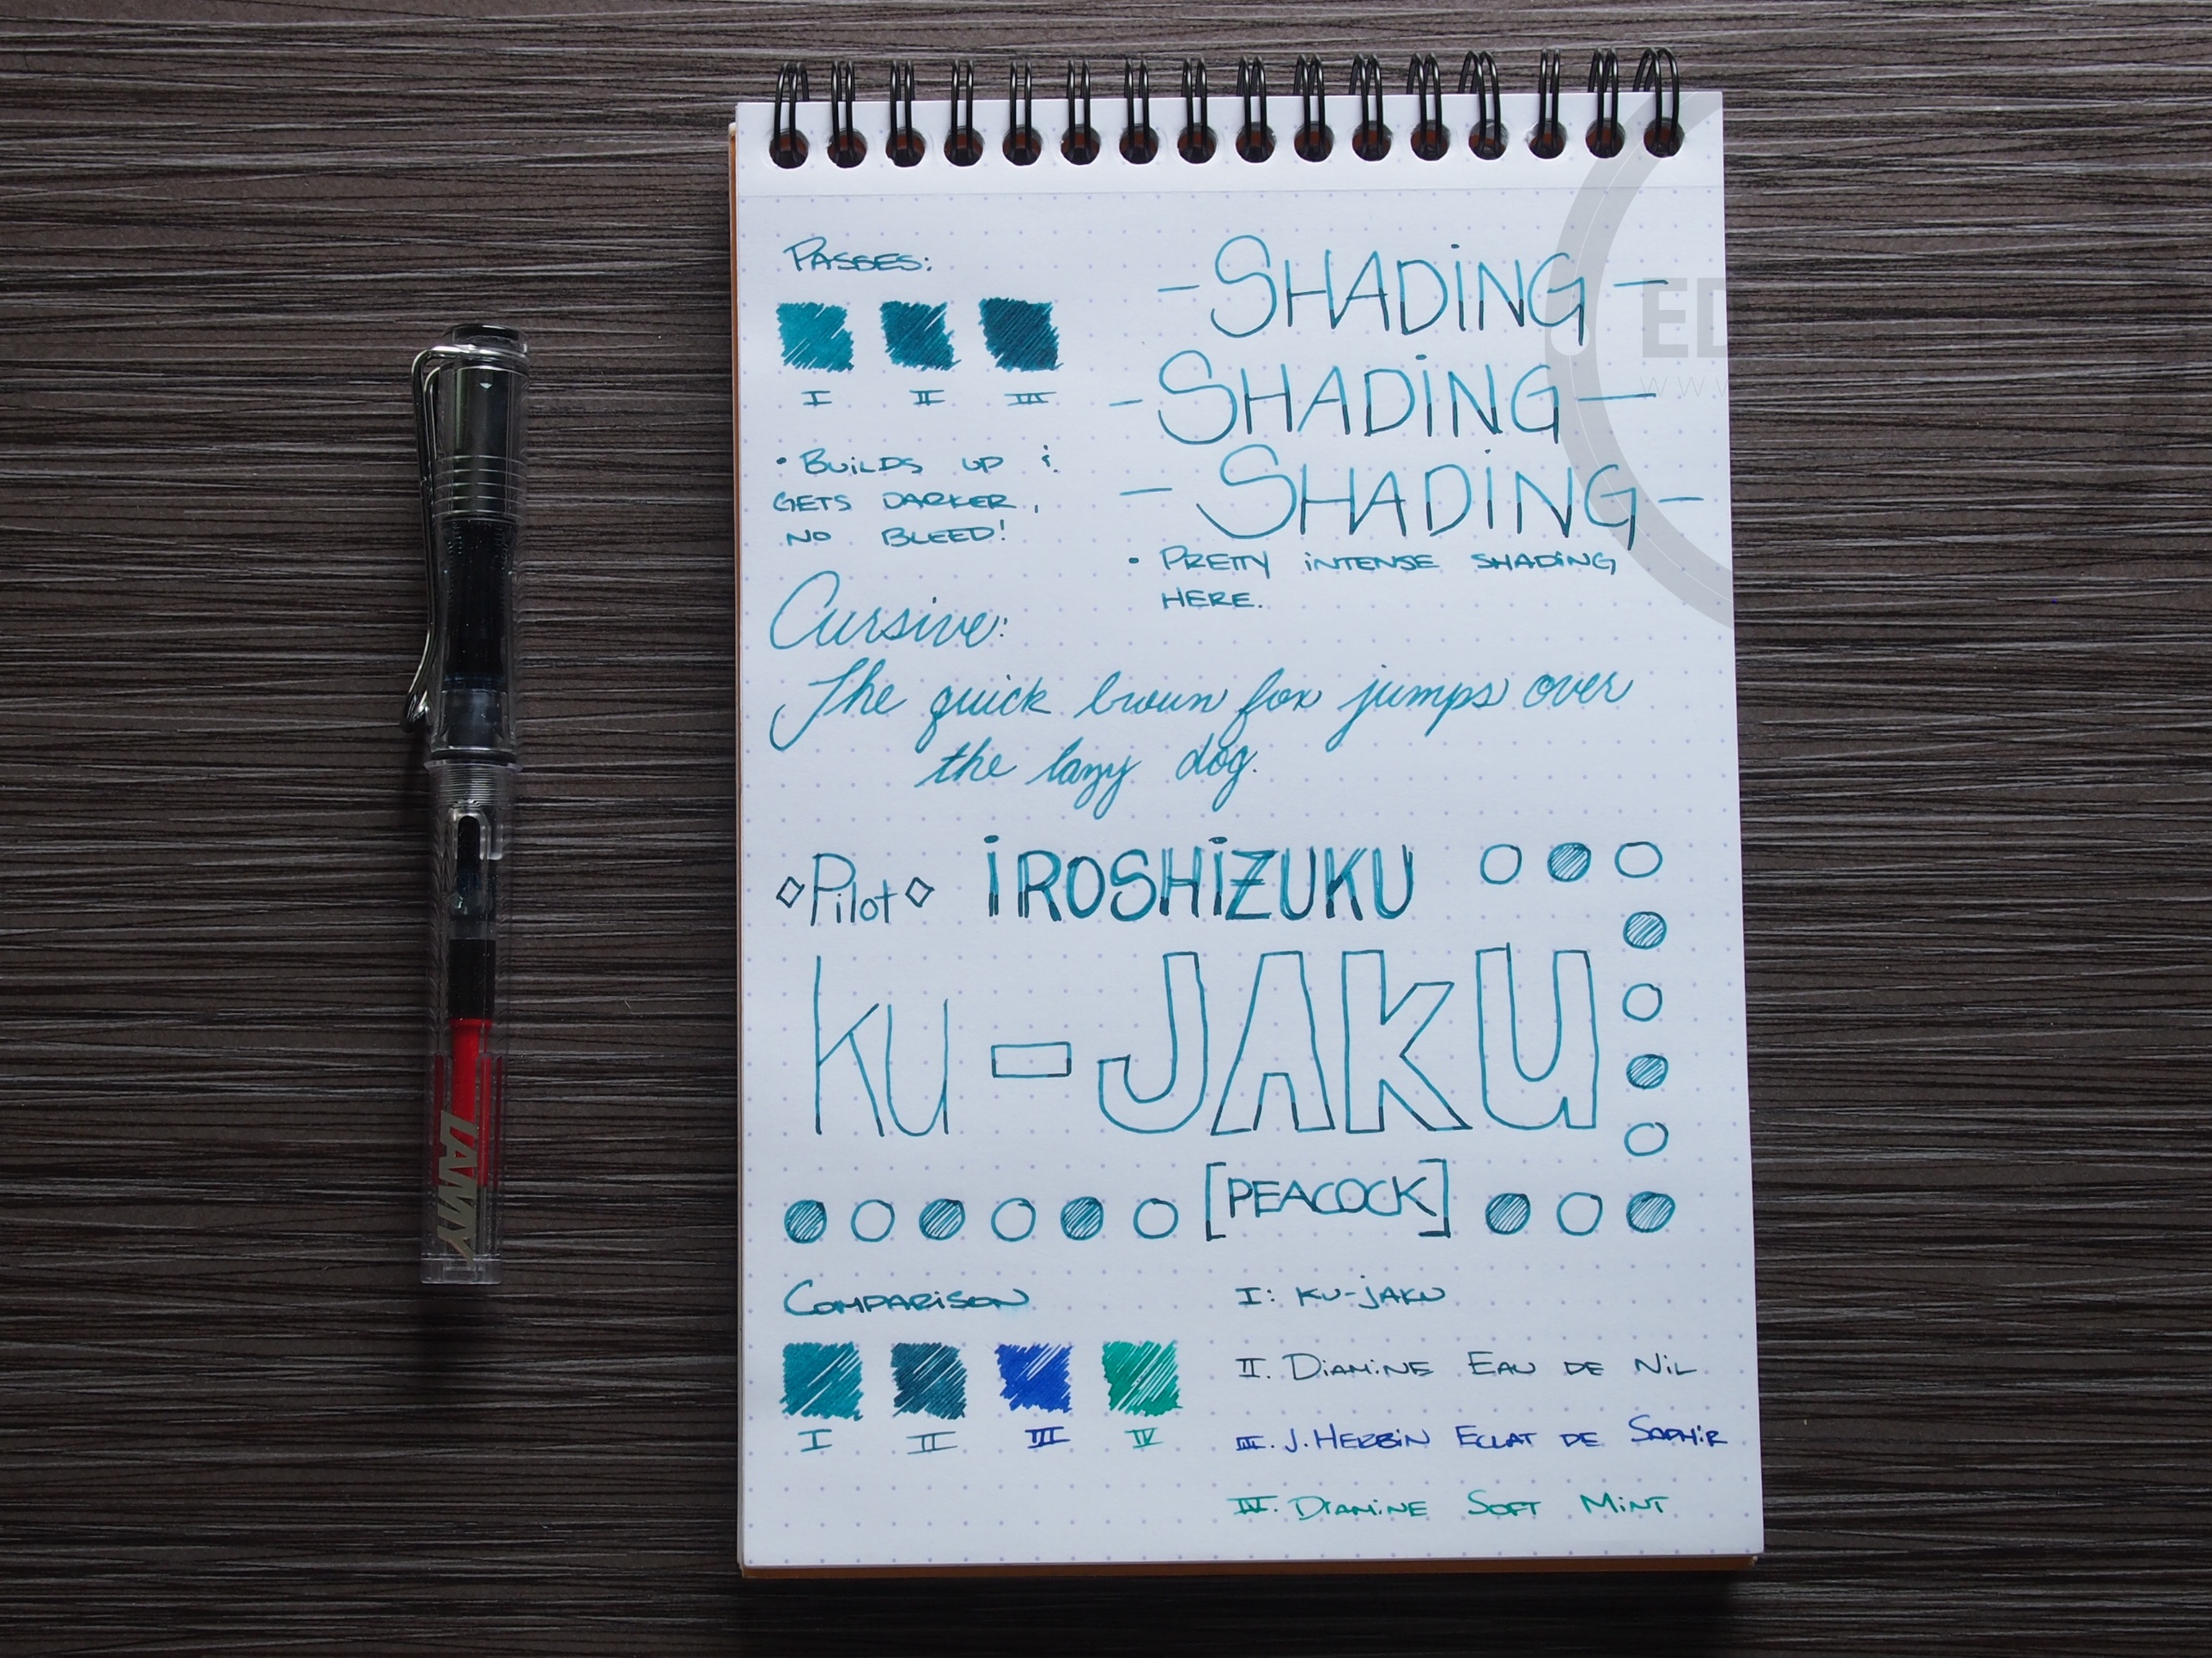 PASSES:
I II III
• BUILDS UP &
GETS DARKER,
NO BLEED!
- SHADING -
- SHADING -
- SHADING -
• PRETTY INTENSE SHADING
HERE.
Cursive:
The quick brown fox jumps over
the lazy dog.
◇Pilot◇ IROSHIZUKU
KU-JAKU
[PEACOCK]
COMPARISON
I II III IV
I: KU-JAKU
II. DIAMINE EAU DE NIL
III. J. HERBIN ECLAT DE SAPHIR
IV. DIAMINE SOFT MINT
LAMY
ED
WW